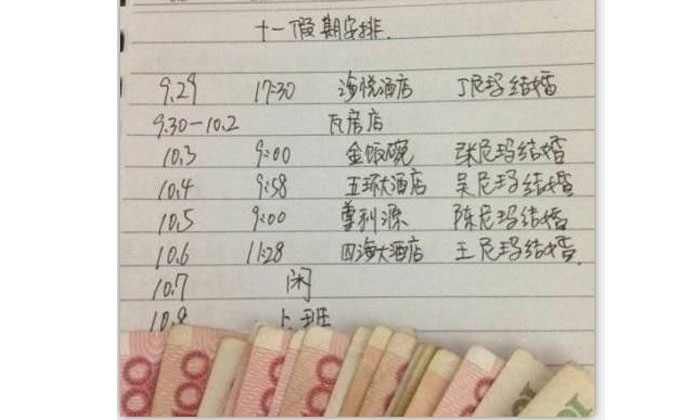 十一假期安排.
9.29 17:30 海悦酒店 丁尼玛结婚
9.30-10.2 瓦房店
10.3 9:00 金饭碗 张尼玛结婚
10.4 9:58 五环大酒店 吴尼玛结婚
10.5 9:00 尊利源 陈尼玛结婚
10.6 11:28 四海大酒店 王尼玛结婚.
10.7 闲
10.8 上班
100